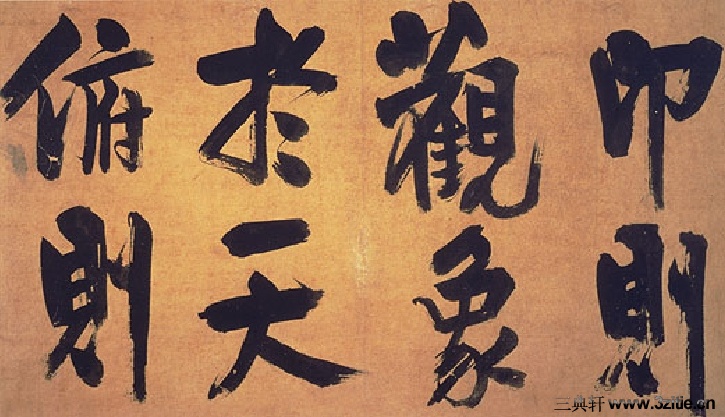 卬則
觀象
於天
俯則
三典轩 www.3zitie.cn